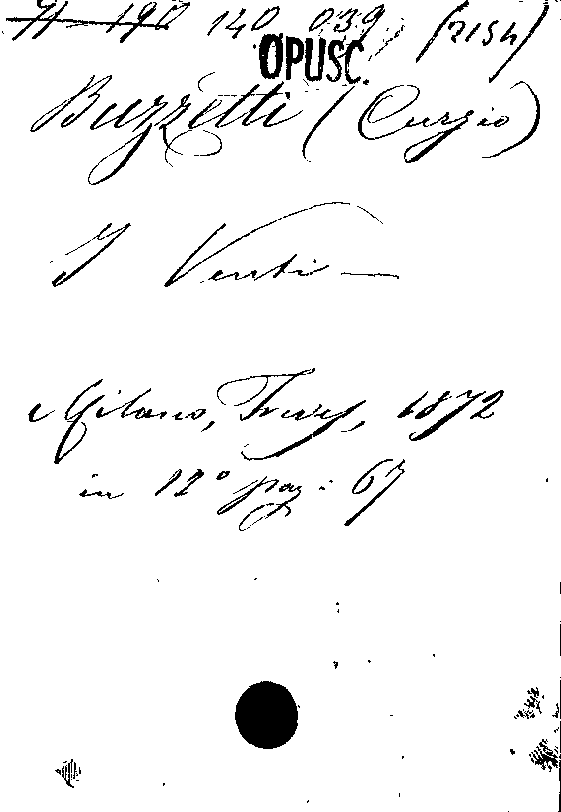 140 039 (2154)
OPUSC.
Buzzetti (Curzio)
I Venti —
Milano, Treves, 1872
in 12° pag: 67